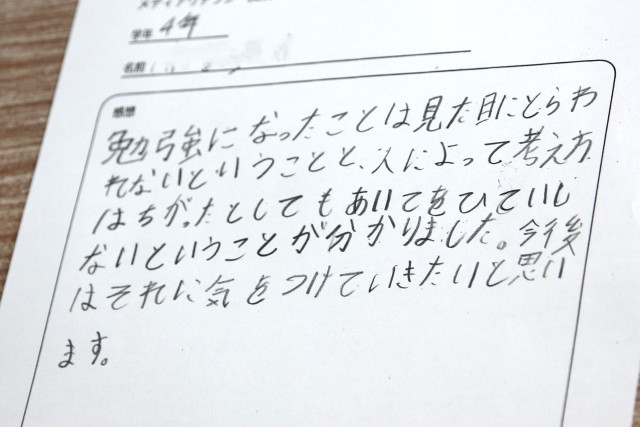 学年 4年
名前
感想
勉強になったことは見た目にとらわ
れないということと、人によって考え方
はちがったとしてもあいてをひていし
ないということが分かりました。今後
はそれに気をつけていきたいと思い
ます。